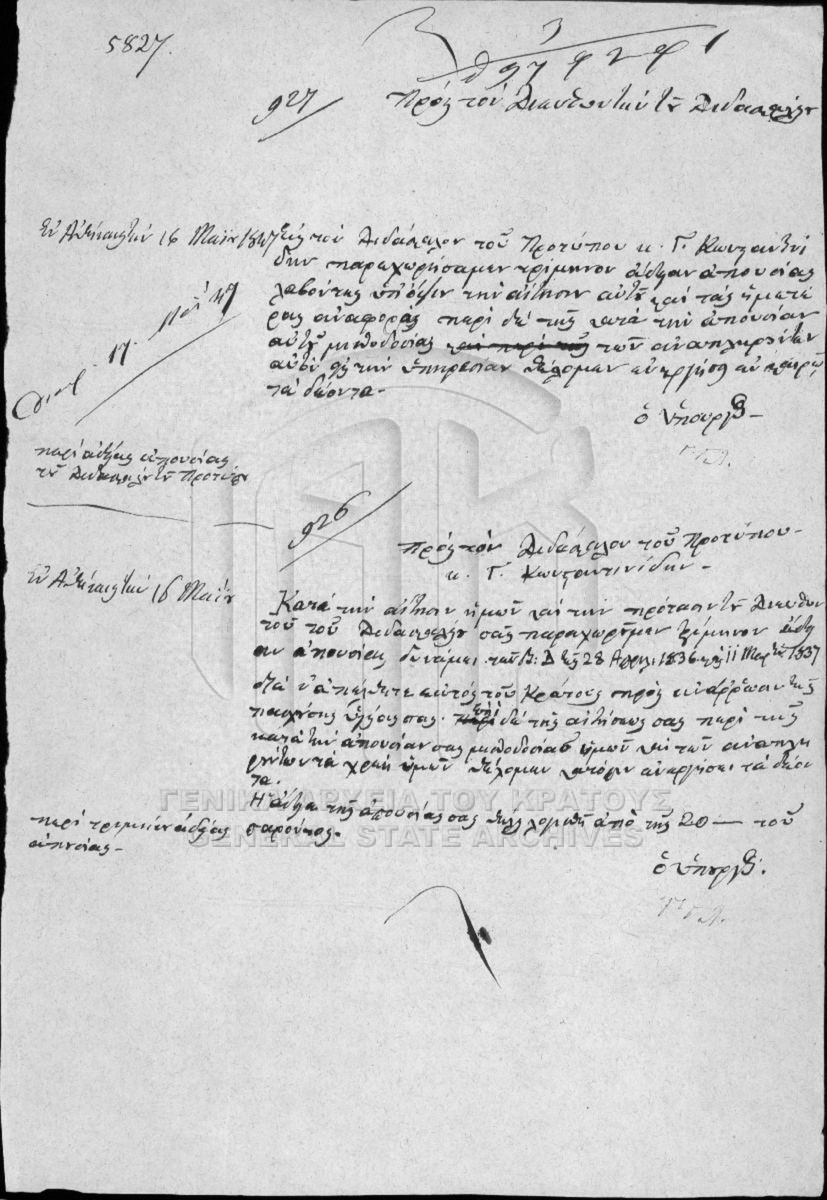 5827.
927
Πρὸς τὸν Διευθυντὴν τοῦ Διδασκαλείου
Ἐν Ἀθήναις τὴν 16 Μαΐου 1847
Εἰς τὸν Διδάσκαλον τοῦ Προτύπου κ. Γ. Κωνσταντινί
δην παρεχωρήσαμεν τρίμηνον ἄδειαν ἀπουσίας
λαβόντες ὑπ' ὄψιν τὴν αἴτησιν αὐτοῦ καὶ τὰς ὑμετέ
ρας ἀναφοράς. περὶ δὲ τῆς κατὰ τὴν ἀπουσίαν
αὐτοῦ μισθοδοσίας καὶ περὶ τῆς τῶν ἀναπληρούντων
αὐτὸν εἰς τὴν ὑπηρεσίαν θέλομεν ἐνεργήσει
τὰ δέοντα.
ὁ Ὑπουργὸς
17 Μαΐ 47
περὶ ἀδείας ἀπουσίας
τοῦ Διδασκάλου τοῦ Προτύπου
926
Πρὸς τὸν Διδάσκαλον τοῦ Προτύπου
κ. Γ. Κωνσταντινίδην.
Ἐν Ἀθήναις τὴν 16 Μαΐου
Κατὰ τὴν αἴτησιν ὑμῶν καὶ τὴν πρότασιν τοῦ Διευθυν
τοῦ τοῦ Διδασκαλείου σᾶς παραχωροῦμεν τρίμηνον ἄδει
αν ἀπουσίας δυνάμει τῶν Β: Δ τῆς 28 Ἀπριλ. 1836 καὶ 11 Μαρτίου 1837
διὰ ν' ἀπέλθητε ἐκτὸς τοῦ Κράτους πρὸς ἀνάρρωσιν τῆς
πασχούσης ὑγείας σας. ἐπὶ δὲ τῆς αἰτήσεώς σας περὶ τῆς
κατὰ τὴν ἀπουσίαν σας μισθοδοσίας ὑμῶν καὶ τῶν ἀναπλη
ρούντων τὰ χρέη ὑμῶν θέλομεν κατόπιν ἐνεργήσει τὰ δέον
τα.
Ἡ ἄδεια τῆς ἀπουσίας σας θέλει λογισθῆ ἀπὸ τῆς 20 — τοῦ
παρόντος.
περὶ τριμήνου ἀδείας
ἀπουσίας.
ὁ Ὑπουργός.
ΓΕΝΙΚΑ ΑΡΧΕΙΑ ΤΟΥ ΚΡΑΤΟΥΣ
GENERAL STATE ARCHIVES